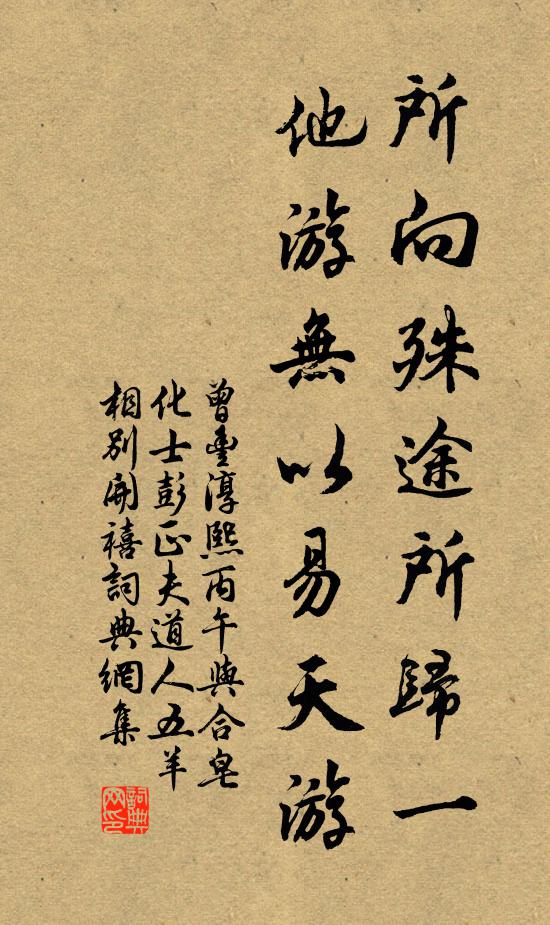 所向殊途所歸一
他游無以易天游
曾豊淳熙丙午與合皂
化士彭正夫道人五羊
相別開禧詞典網集
詞典
网印